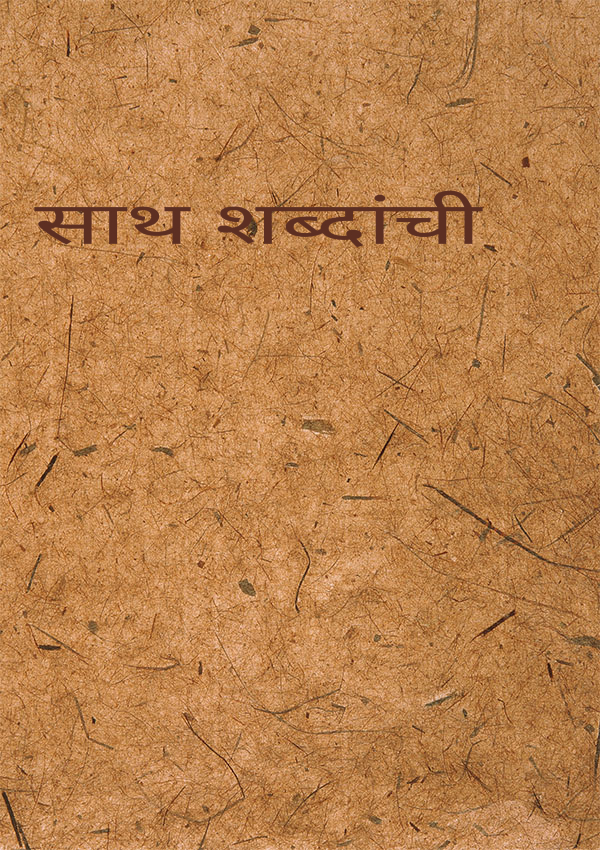 साथ शब्दांची